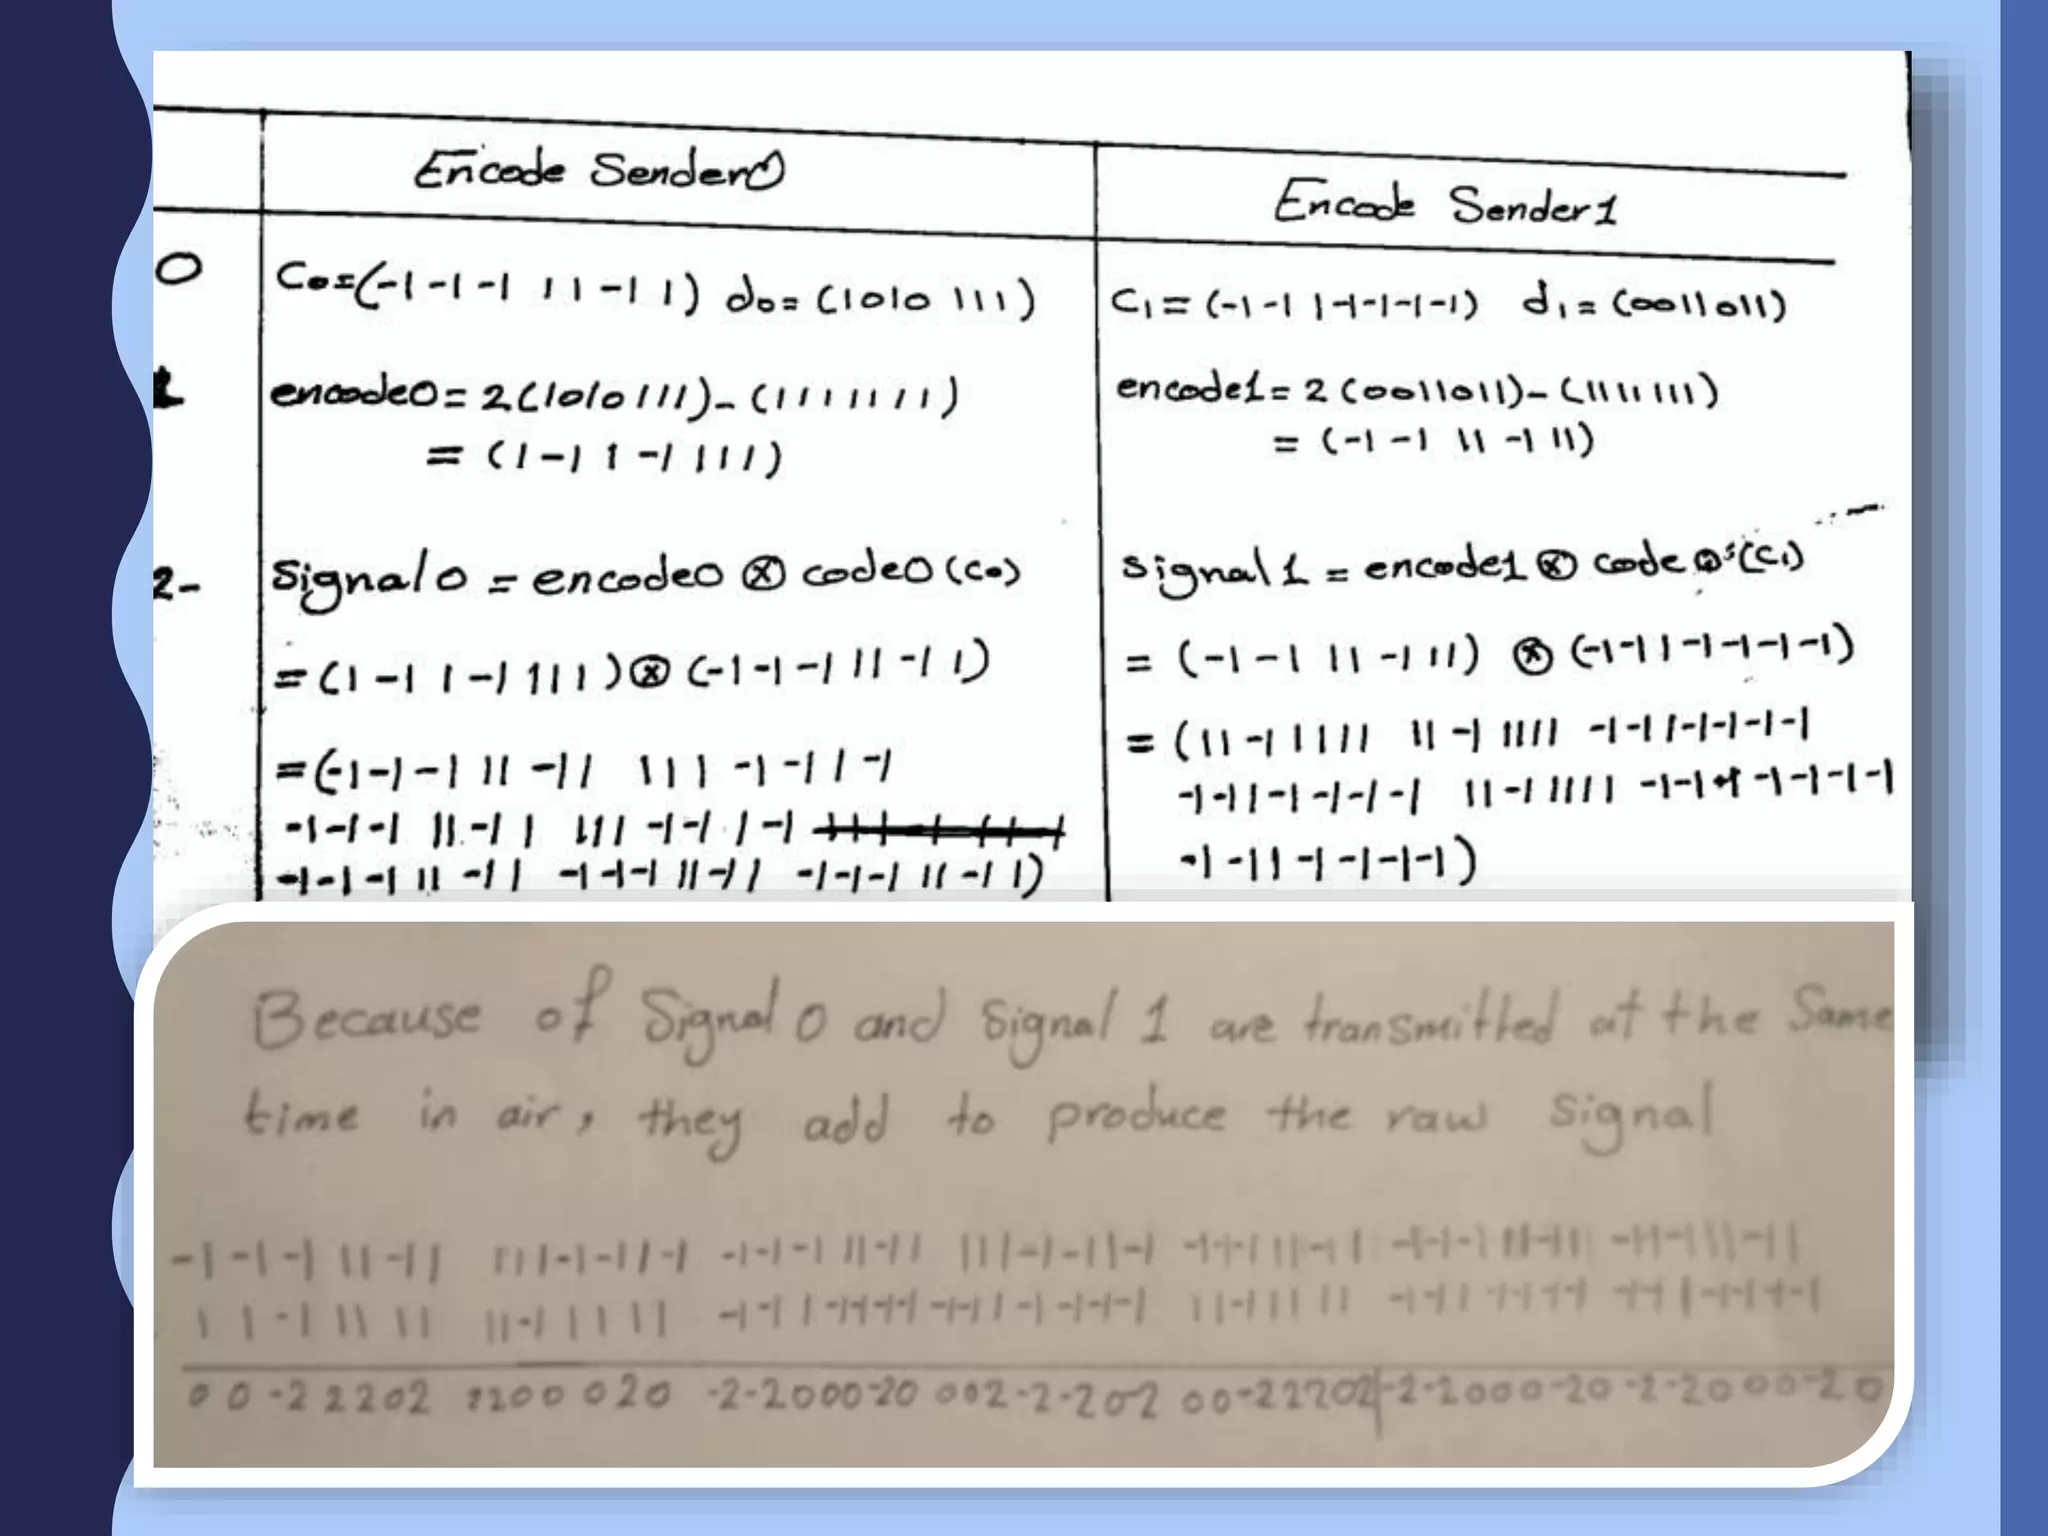 Encode Sender0
Encode Sender1
0
C0=(-1 -1 -1 1 1 -1 1) d0= (1010 111)
C1 = (-1 -1 1 -1 -1 -1 -1) d1 = (0011011)
1
encode0= 2(1010111)-(1111111)
encode1= 2 (0011011)-(1111111)
= (1 -1 1 -1 1 1 1)
= (-1 -1 11 -1 11)
2-
Signal 0 = encode0 ⊗ code0 (C0)
signal 1 = encode1 ⊗ code (C1)
= (1 -1 1 -1 1 1 1) ⊗ (-1 -1 -1 11 -1 1)
= (-1 -1 11 -1 11) ⊗ (-1 -1 1 -1 -1 -1 -1)
=(-1 -1 -1 11 -11 111 -1 -1 1 -1
= (11 -1 1111 11 -1 1111 -1 -1 1 -1 -1 -1 -1
-1 -1 -1 11 -1 1 111 -1 -1 1 -1
-1 -1 1 -1 -1 -1 -1 11 -1 1111 -1 -1 1 -1 -1 -1 -1
-1 -1 -1 11 -1 1 -1 -1 -1 11 -1 1 -1 -1 -1 11 -1 1)
-1 -1 1 -1 -1 -1 -1)
Because of Signal 0 and Signal 1 are transmitted at the Same
time in air, they add to produce the raw Signal
-1 -1 -1 11 -11 111 -1 -11 -1 -1 -1 -1 11 -11 111 -1 -11 -1
11 -1 11 11 11 -1 11 11
0 0 -2 2 2 0 2 2 2 0 0 0 2 0 -2 -2 0 0 0 -2 0 0 0 2 -2 -2 0 0 -2 2 2 0 2 -2 -2 0 0 0 -2 0 -2 -2 0 0 0 -2 0